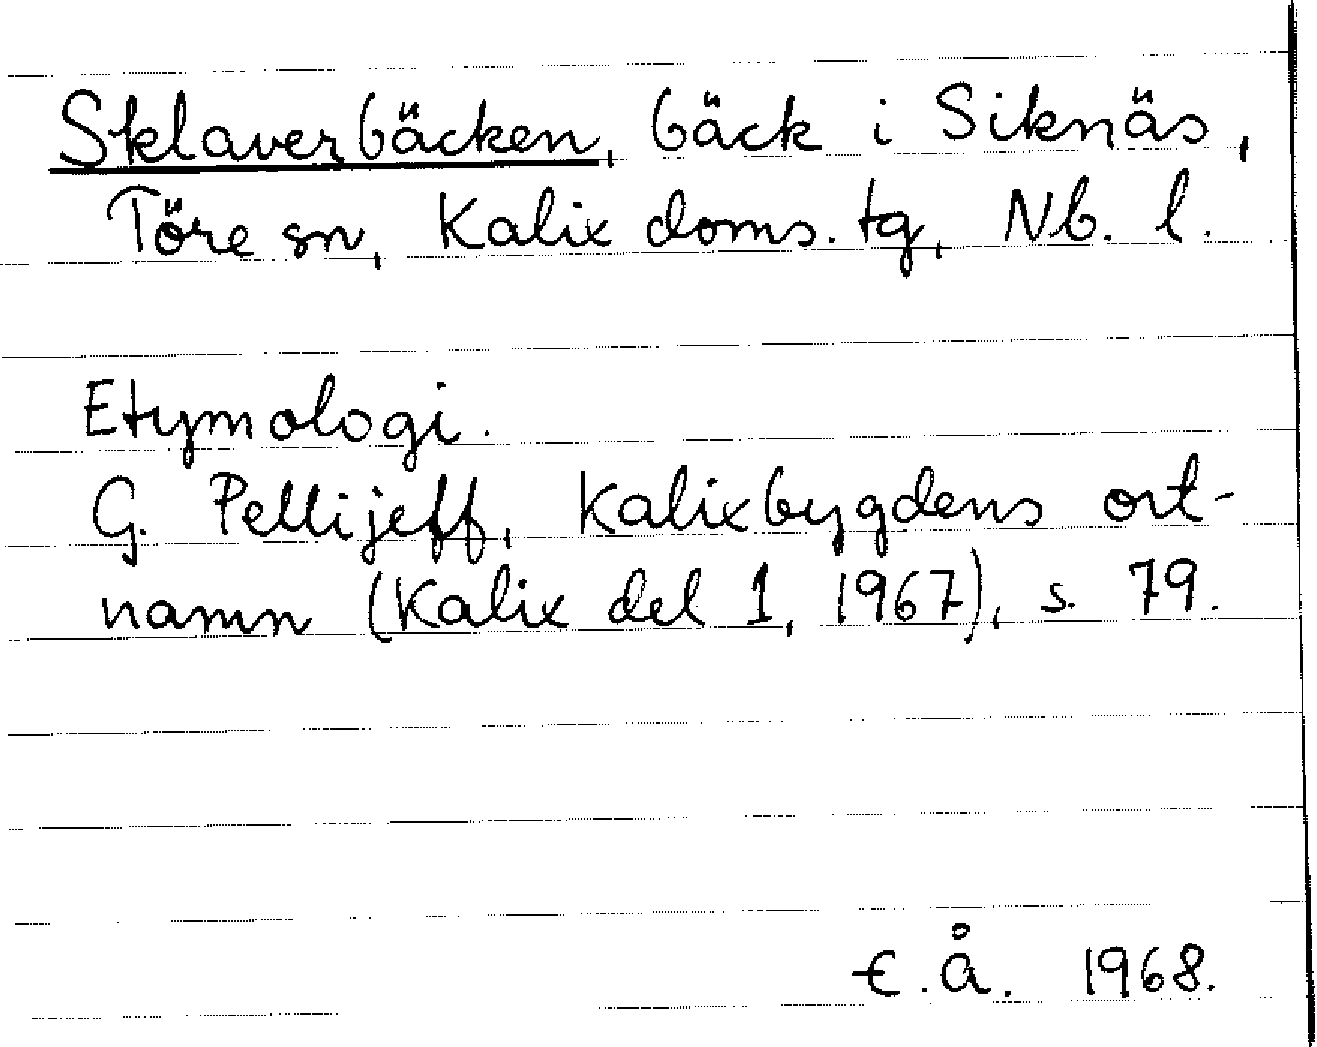 Sklaverbäcken, bäck i Siknäs,
Töre sn, Kalix doms. tg, Nb. l.
Etymologi.
G. Pellijeff, Kalixbygdens ort-
namn (Kalix del 1, 1967), s. 79.
E. Å. 1968.